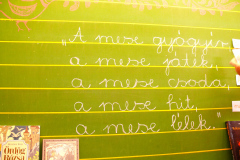 „A mese gyógyír,
a mese játék,
a mese csoda,
a mese hit,
a mese lélek."
Ördög
Róza